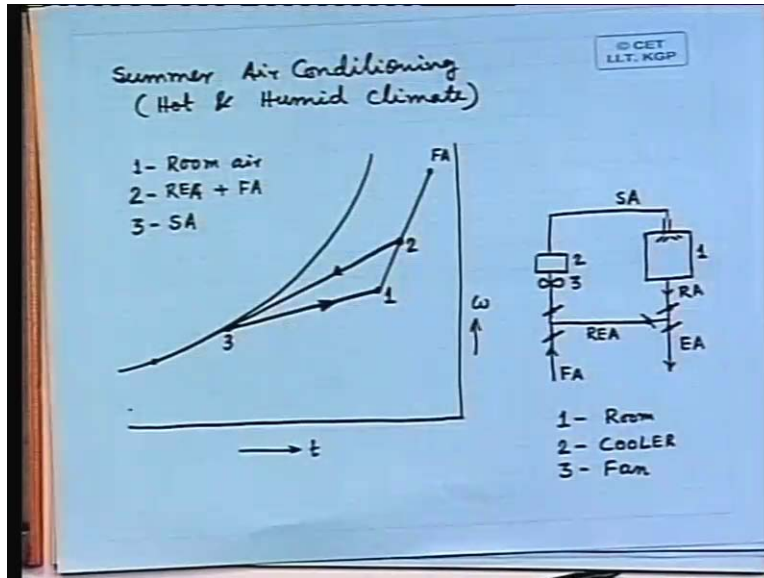 © CET
I.I.T. KGP
Summer Air Conditioning
(Hot & Humid Climate)
1- Room air
2- REA + FA
3- SA
FA
2
1
3
ω
t
SA
2
3
1
RA
REA
EA
FA
1- Room
2- COOLER
3- Fan